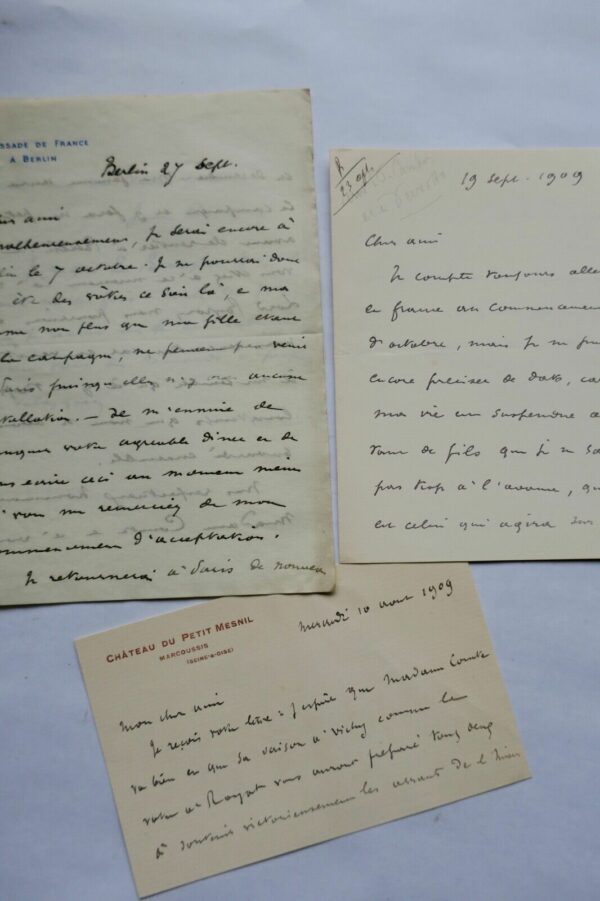 SSADE DE FRANCE
A BERLIN
Berlin 27 Sept.
ami
malheureusement, je serai encore à
le 7 octobre. Je ne pourrai donc
être des vôtres ce soir là, e ma
non plus que ma fille étant
la campagne, ne peuvent pas venir
Paris puisqu'elles n'y ont aucune
stallation. — Je m'ennuie de
manquer votre agréable diner et de
vous écrire ceci au moment même
où vous me remerciez de mon
commencement d'acceptation.
Je retournerai à Paris de nouveau
R
23 sept.
19 sept. 1909
Cher ami
Je compte toujours alle
en france au commencement
d'octobre, mais je ne puis
encore préciser de date, car
ma vie est suspendue à
tant de fils que je ne sa
pas trop à l'avance, qu
est celui qui agira sur
CHÂTEAU DU PETIT MESNIL
MARCOUSSIS
(SEINE-&-OISE)
mercredi 10 aout 1909
Mon cher ami
Je reçois votre lettre : j'espère que Madame Comte
va bien et que sa saison à Vichy comme la
votre a Royat vous auront préparé tous deux
à soutenir victorieusement les assauts de l'hiver